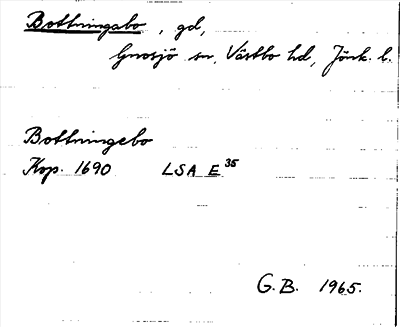 Bottningabo, gd,
Gnosjö sn, Västbo hd, Jönk. l.
Bottningebo
Kop. 1690 LSA E 35
G.B. 1965.